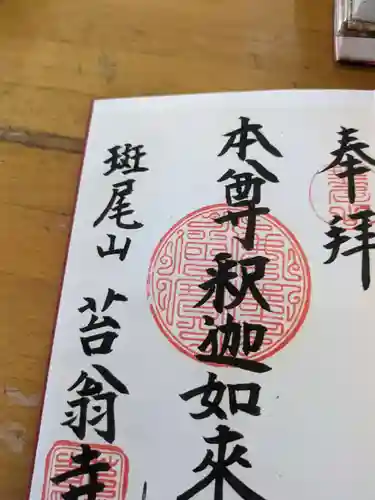 奉拝
本尊釈迦如来
斑尾山
苔翁寺